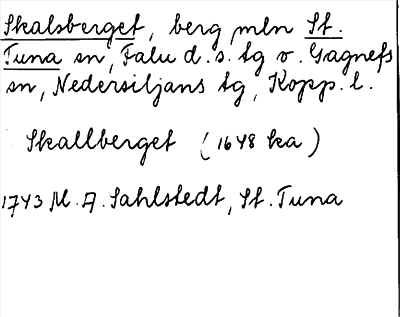 Skalsberget, berg mln St.
Tuna sn, Falu d. s. tg o. Gagnefs
sn, Nedersiljans tg, Kopp. l.
Skallberget (1648 ka)
1743 M. A. Sahlstedt, St. Tuna